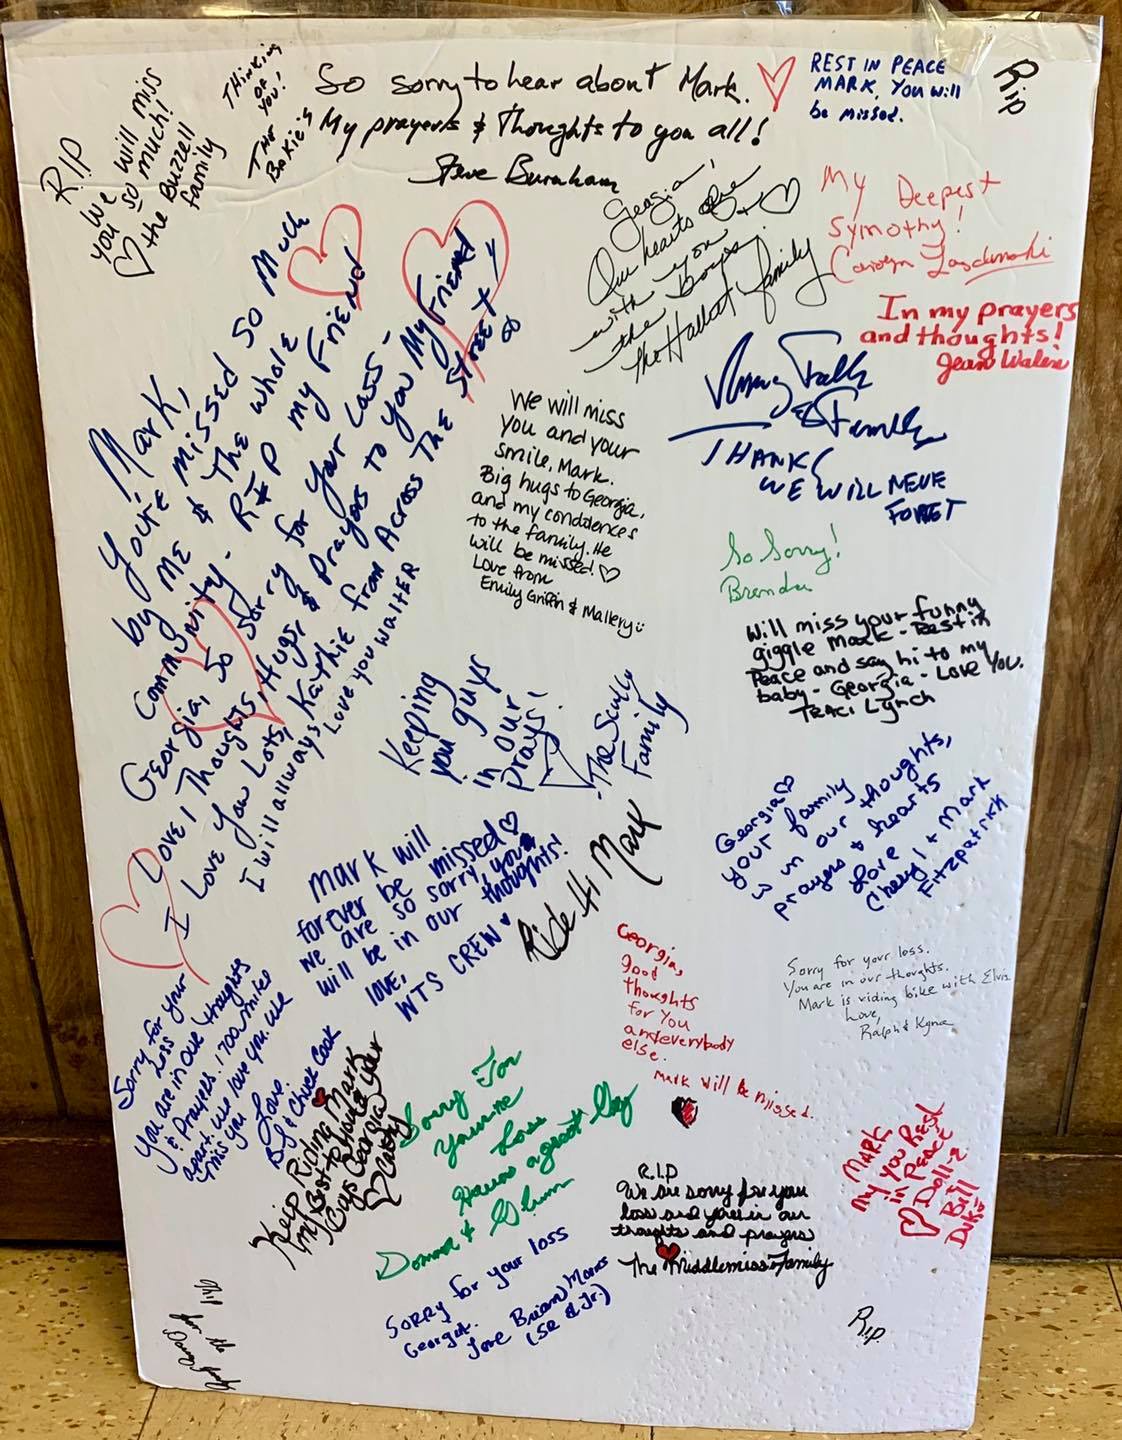 R.I.P
we will miss
you so much!
the Buzzell
family
Thinking
of
you!
The
Bakie's
So sorry to hear about Mark.
My prayers & thoughts to you all!
Steve Burnham
REST IN PEACE
MARK, You will
be missed.
Rip
Georgia!
Our hearts are
with you +
the Boys.
The Hallett family
My Deepest
Symothy!
Carolyn
In my prayers
and thoughts!
Jean
Mark,
You're missed so much
by me & the whole
community. RIP my Friend
Georgia, So sorry for your loss -
Love, Thoughts, Hugs & Prayers to you My Friend
I Love You Lots, Kathie from Across The Street
I will allways Love you WALTER
We will miss
you and your
smile, Mark.
Big hugs to Georgia,
and my condolences
to the family. He
will be missed.
Love from
Emily Griffin & Mallery
& Family
THANKS
WE WILL NEVE
FORGET
So Sorry!
Brenda
Will miss your funny
giggle Mark - Rest in
Peace and say hi to my
baby - Georgia - Love You.
Traci Lynch
Keeping
you guys
in our
prays!
- The Scully
Family
Georgia
your family
is in our thoughts,
prayers & hearts
Love
Cheryl + Mark
Fitzpatrick
Mark will
forever be missed
we are so sorry, you
will be in our thoughts!
love,
WTS CREW
Ride Hi Mark
Georgia,
good
thoughts
for you
and everybody
else.
Mark will be missed.
Sorry for your loss.
You are in our thoughts.
Mark is riding bike with Elvis
Love,
Ralph & Kyna
Sorry for your
Loss
You are in our thoughts
& Prayers. 1700 miles
apart, we love you. we
miss you
Love
BJ & Chuck Cook
Keep Riding Mark
my Best to You & your
Guys Georgia
Cathy
Sorry For
Your
Loss
Have a great
Donna & Glenn
R.I.P
We are sorry for your
loss and you're in our
thoughts and prayers
The Middlemiss Family
MARK
may you Rest
in Peace
Doll-2
Bill
Duke
Sorry for your loss
Georgia.
Love Brian Mores
(SR & Jr.)
for the
R.I.P.